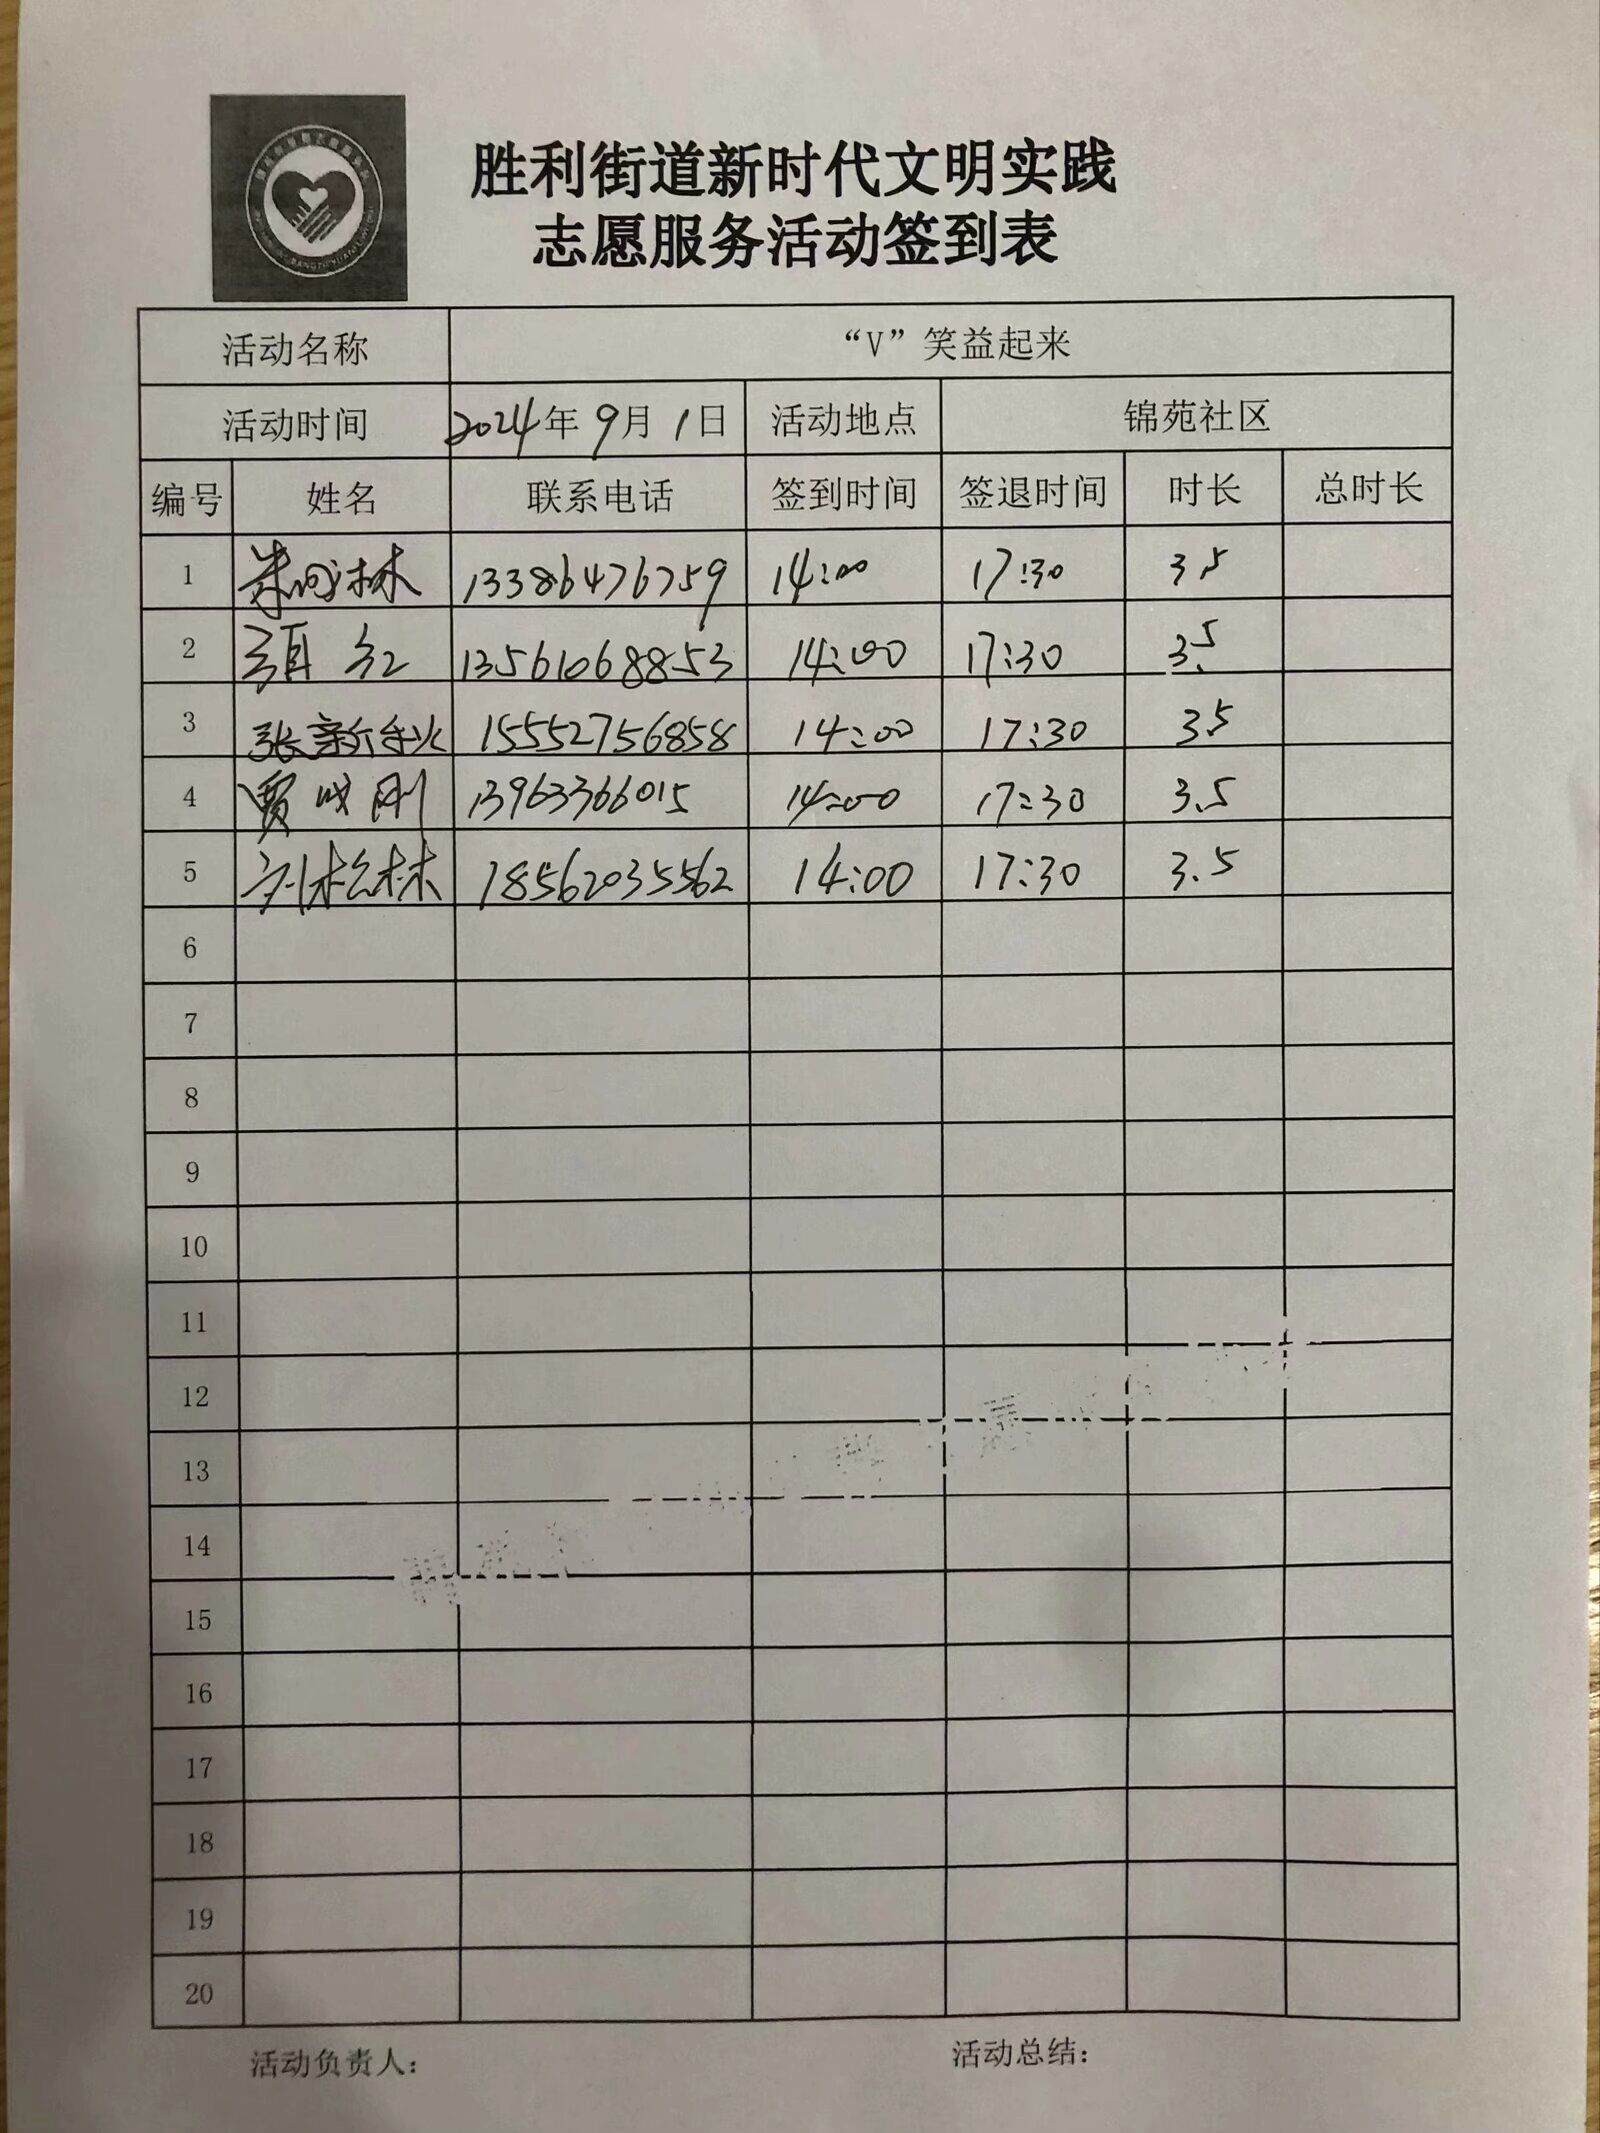 胜利街道新时代文明实践
志愿服务活动签到表
活动名称 “V”笑益起来
活动时间 2024年9月1日 活动地点 锦苑社区
编号 姓名 联系电话 签到时间 签退时间 时长 总时长
1 13386476759 14:00 17:30 3.5
2 项红 13561068853 14:00 17:30 3.5
3 张新秋 15552756858 14:00 17:30 3.5
4 贾成刚 13963366015 14:00 17:30 3.5
5 刘松林 18562035562 14:00 17:30 3.5
6
7
8
9
10
11
12
13
14
15
16
17
18
19
20
活动负责人: 活动总结: